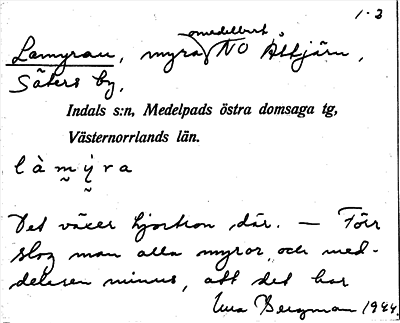 1-2
omedelbart
Lamyran, myra NO Åttjärn,
Säters by.
Indals s:n, Medelpads östra domsaga tg,
Västernorrlands län.
làmýra
Det växer hjortron där. — Förr
slog man alla myror, och med-
delesen minns, att det har
Bergman 1944.